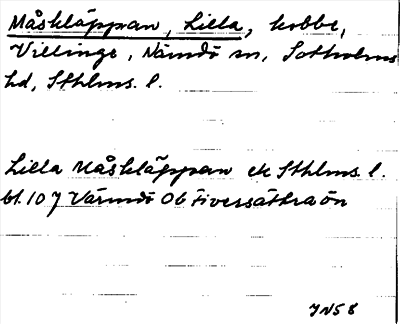 Måskläppan, Lilla, kobbe,
Villinge, Nämdö sn, Sotholms
hd, Sthlms. l.
Lilla Måskläppan ek Sthlms. l.
bl. 107 Värmdö Ob Tiversättraön
JN58